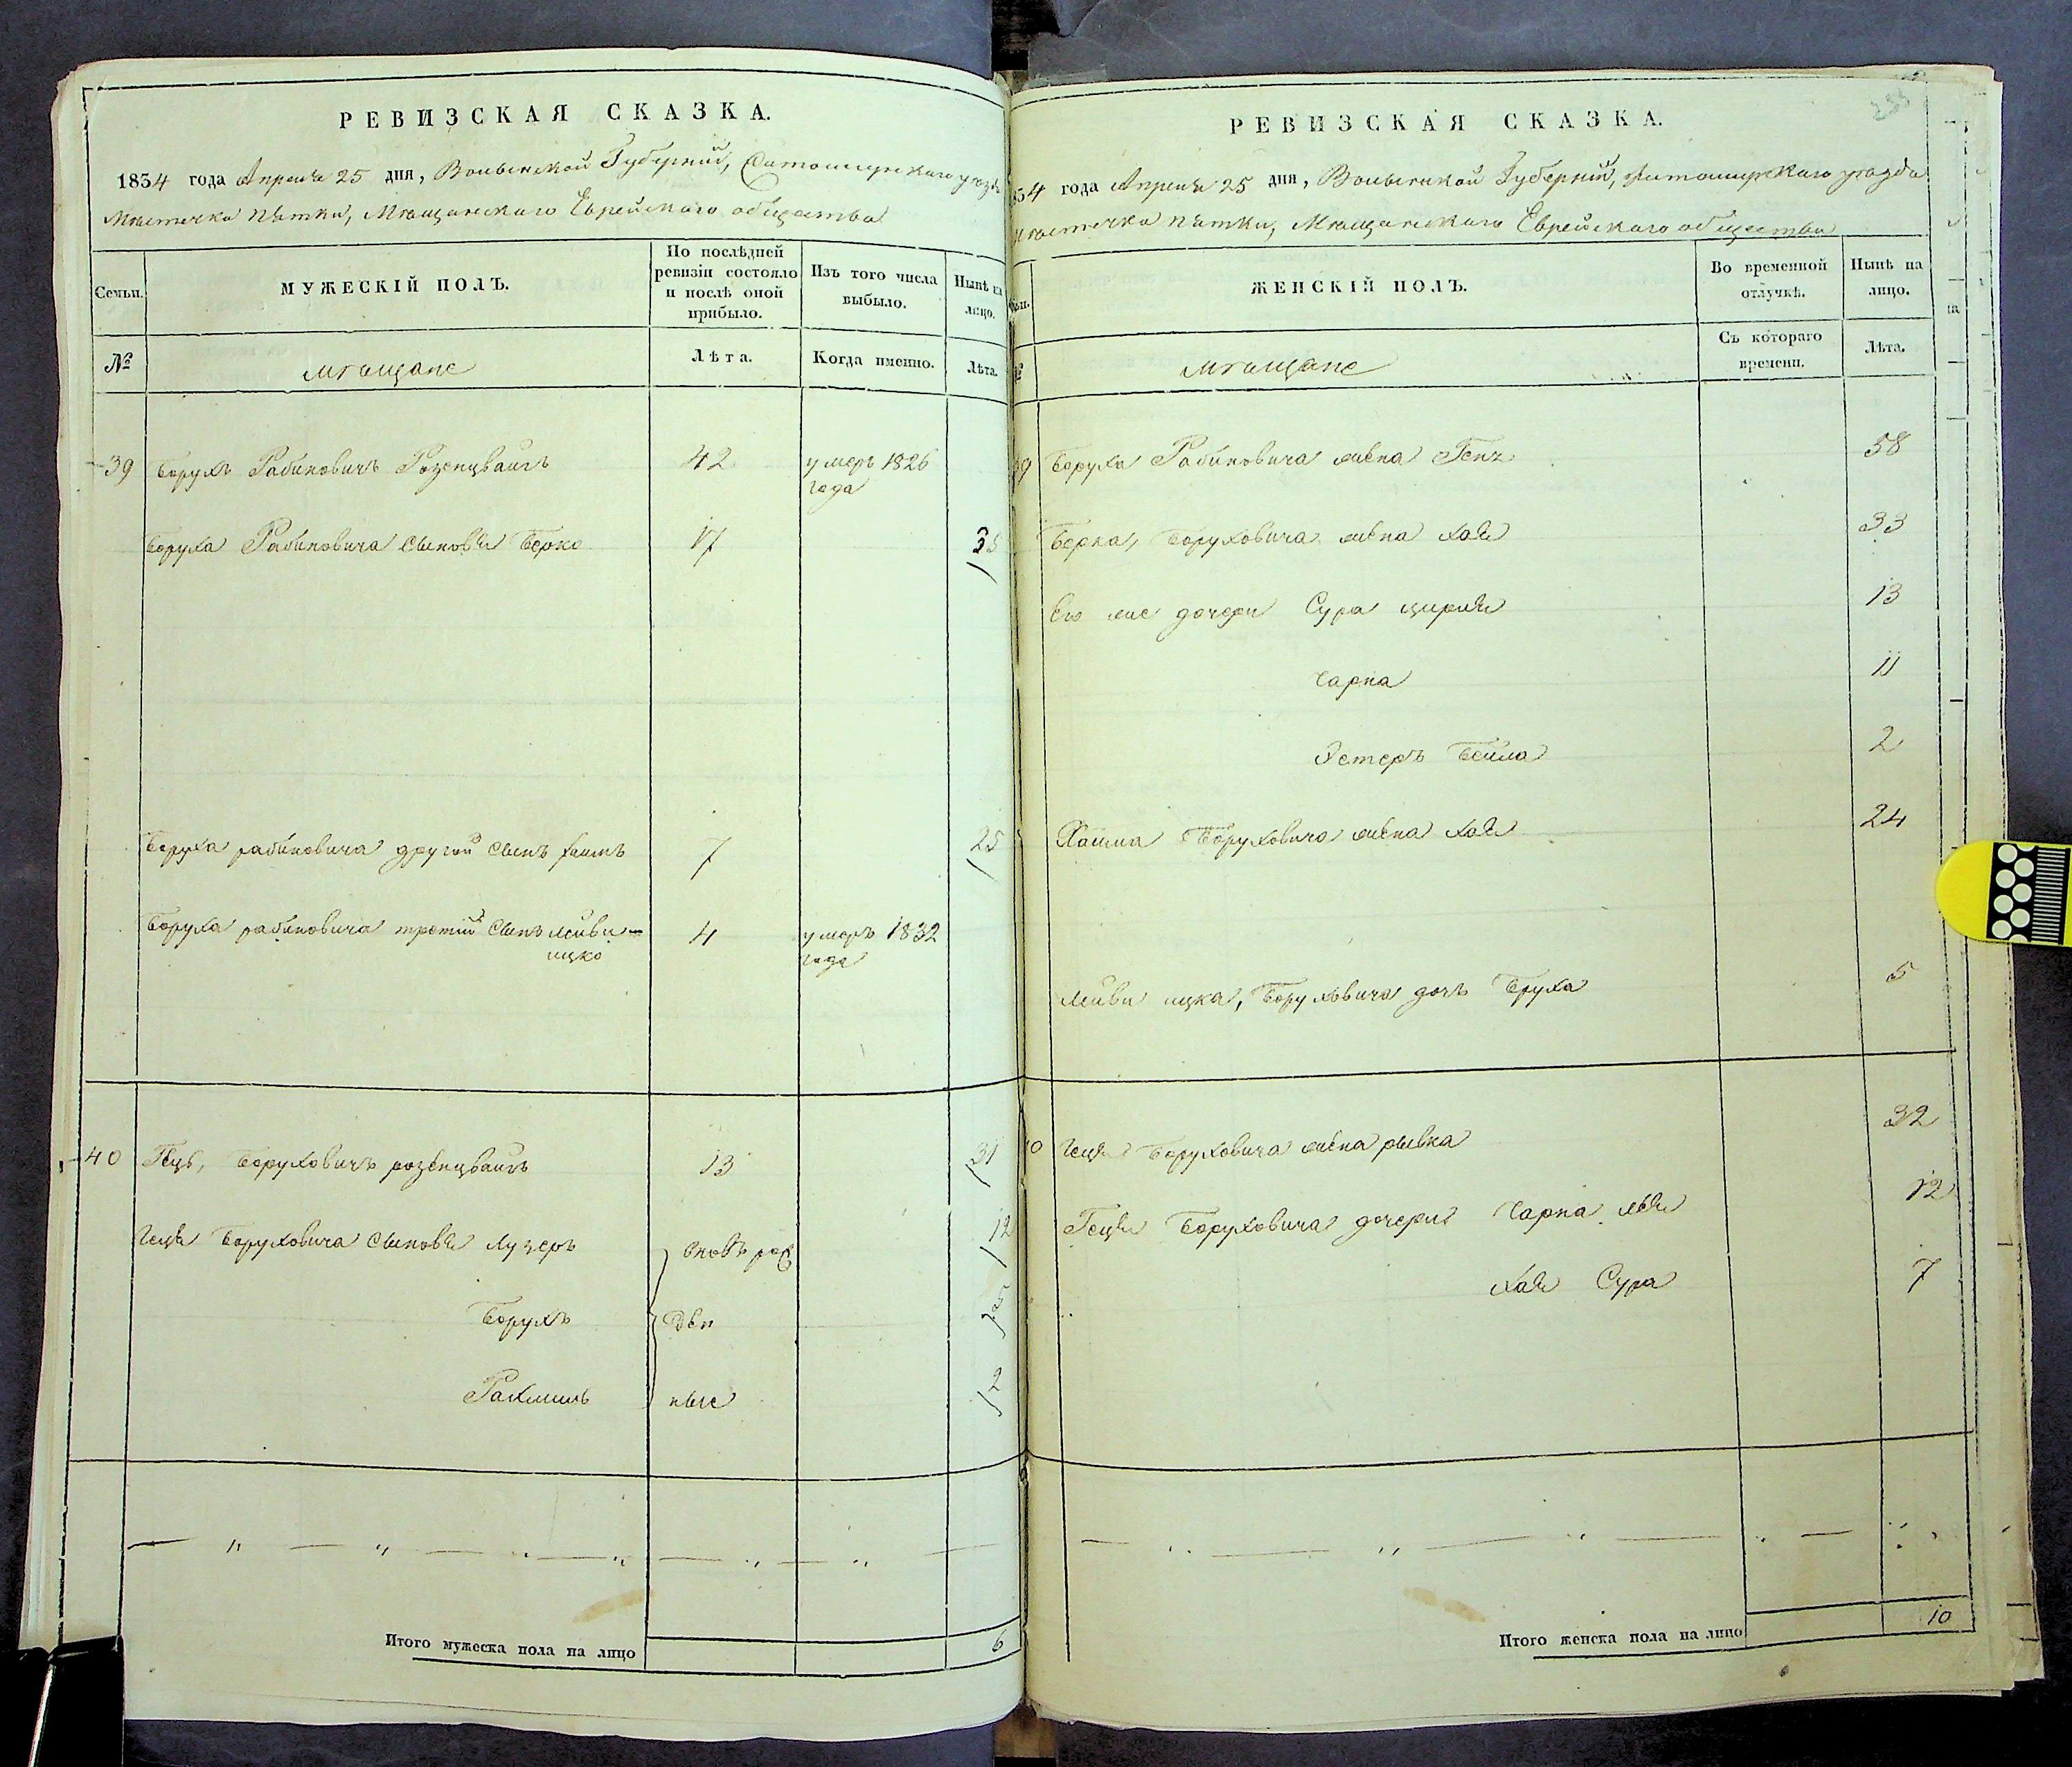 РЕВИЗСКАЯ СКАЗКА.
1834 года Апреля 25 дня, Волынской Губернии, Житомирского уезда
Местечка Пятки, Мещанского Еврейского общества
Семьи.
МУЖЕСКІЙ ПОЛЪ.
По послѣдней ревизіи состояло и послѣ оной прибыло.
Изъ того числа выбыло.
Нынѣ на лицо.
№
мещане
Лѣта.
Когда именно.
Лѣта.
39 Борухъ Рабиновичъ Розенцвайгъ 42 умеръ 1826
года
Боруха Рабиновича сыновья Берко 17 35
Боруха рабиновича другой сынъ хаимъ 7 25
Боруха рабиновича третий сынъ лейви- 4 умеръ 1832
ицко года
40 Гецъ, Боруховичъ розенцвайгъ 13 31
Геця Боруховича сыновья Лузеръ вновь рож 12
Борухъ ден 5
Рахмиль ные 2
Итого мужеска пола на лицо 6
РЕВИЗСКАЯ СКАЗКА.
834 года Апреля 25 дня, Волынской Губернии, Житомирского уезда
Местечка Пятки, Мещанского Еврейского общества
ЖЕНСКІЙ ПОЛЪ.
Во временной отлучкѣ.
Нынѣ на лицо.
№
мещане
Съ котораго времени.
Лѣта.
39 Боруха Рабиновича жена Геня 58
Берка, Боруховича жена хая 33
Его же дочери Сура цирля 13
Чарна 11
Эстеръ Бейла 2
Хаима Боруховича жена хая 24
Лейви ицка, Боруховича дочь Бруха 5
40 Геця Боруховича жена рывка 32
Геця Боруховича дочери Чарна лея 12
хая Сура 7
Итого женска пола на лицо 10